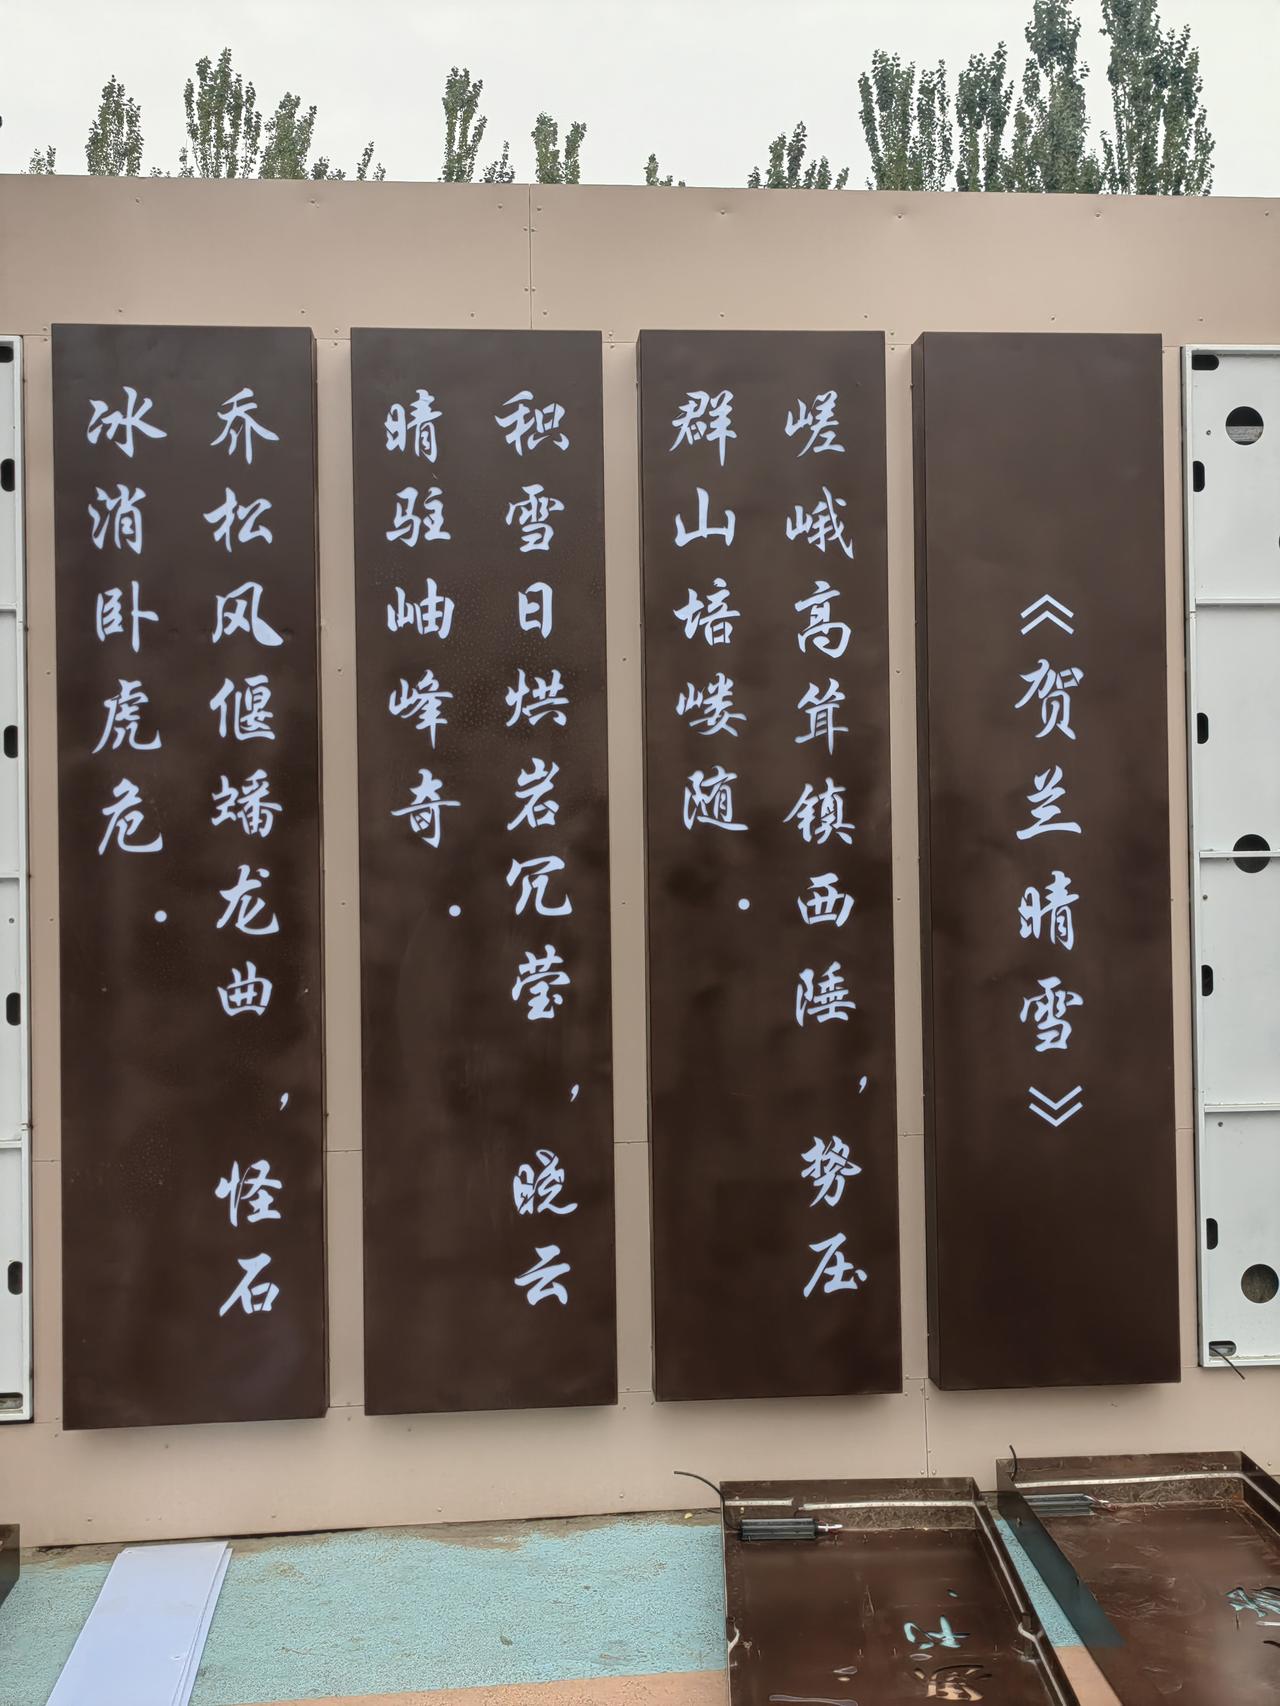 《贺兰晴雪》
嵯峨高耸镇西陲，势压
群山培嵝随．
积雪日烘岩冗莹，晓云
晴驻岫峰奇．
乔松风偃蟠龙曲，怪石
冰消卧虎危．